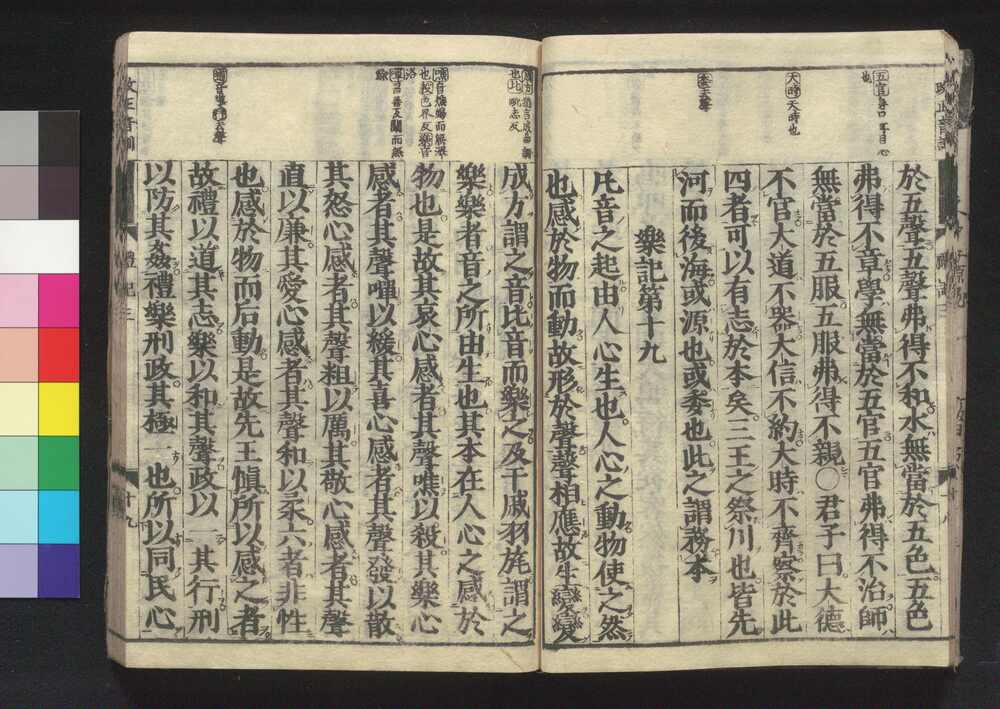 於五聲五聲弗得不和水無當於五色五色
弗得不章學無當於五官五官弗得不治師
無當於五服五服弗得不親○君子曰大德
不官大道不器大信不約大時不齊察於此
四者可以有志於本矣三王之祭川也皆先
河而後海或源也或委也此之謂務本
樂記第十九
凡音之起由人心生也人心之動物使之然
也感於物而動故形於聲聲相應故生變變
成方謂之音比音而樂之及干戚羽旄謂之
樂樂者音之所由生也其本在人心之感於
物也是故其哀心感者其聲噍以殺其樂心
感者其聲嘽以緩其喜心感者其聲發以散
其怒心感者其聲粗以厲其敬心感者其聲
直以廉其愛心感者其聲和以柔六者非性
也感於物而后動是故先王慎所以感之者
故禮以道其志樂以和其聲政以一其行刑
以防其姦禮樂刑政其極一也所以同民心
天時天時也
改正音訓
禮記三
十九